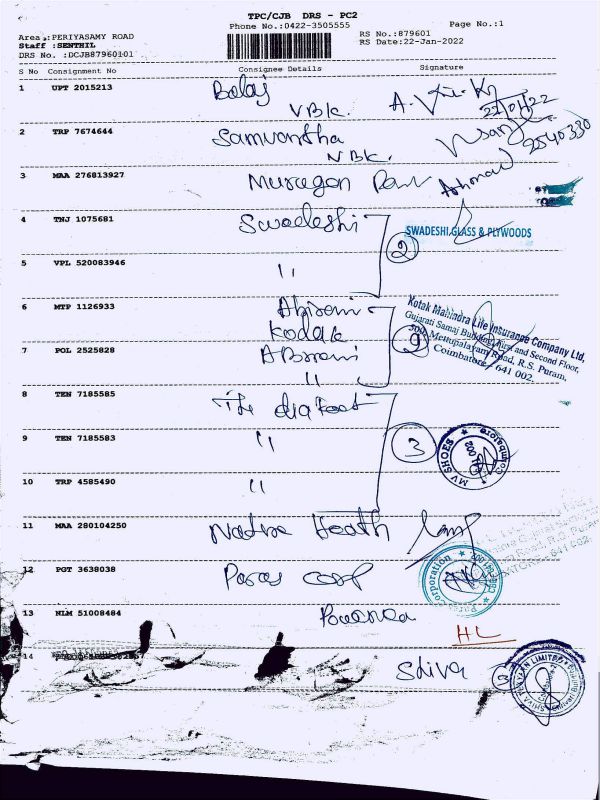 TPC/CJB DRS - PC2
Phone No.:0422-3505555
Page No.:1
Area :PERIYASAMY ROAD
Staff :SENTHIL
DRS No. :DCJB87960101
RS No.:879601
RS Date:22-Jan-2022
S No Consignment No Consignee Details Signature
1 UPT 2015213 Balaj
VBK.
22/01/22
2 TRP 7674644 Samvantha
VBK.
2540330
3 MAA 276813927 Murugan
4 TNJ 1075681 Swadeshi
2 SWADESHI GLASS & PLYWOODS
5 VPL 520083946 "
6 MTP 1126933 Abirami
Kodak
Kotak Mahindra Life Insurance Company Ltd.
Gujarati Samaj Building, First and Second Floor,
Mettupalayam Road, R.S. Puram,
Coimbatore - 641 002.
7 POL 2525828
"
8 TEN 7185585 The
9 TEN 7185583 "
3 MV SHOES Coimbatore
10 TRP 4585490 "
11 MAA 280104250 Native
12 PGT 3638038 Paras Corp
Paras Corporation
13 NLM 51008484
HL
14 Shiva
3